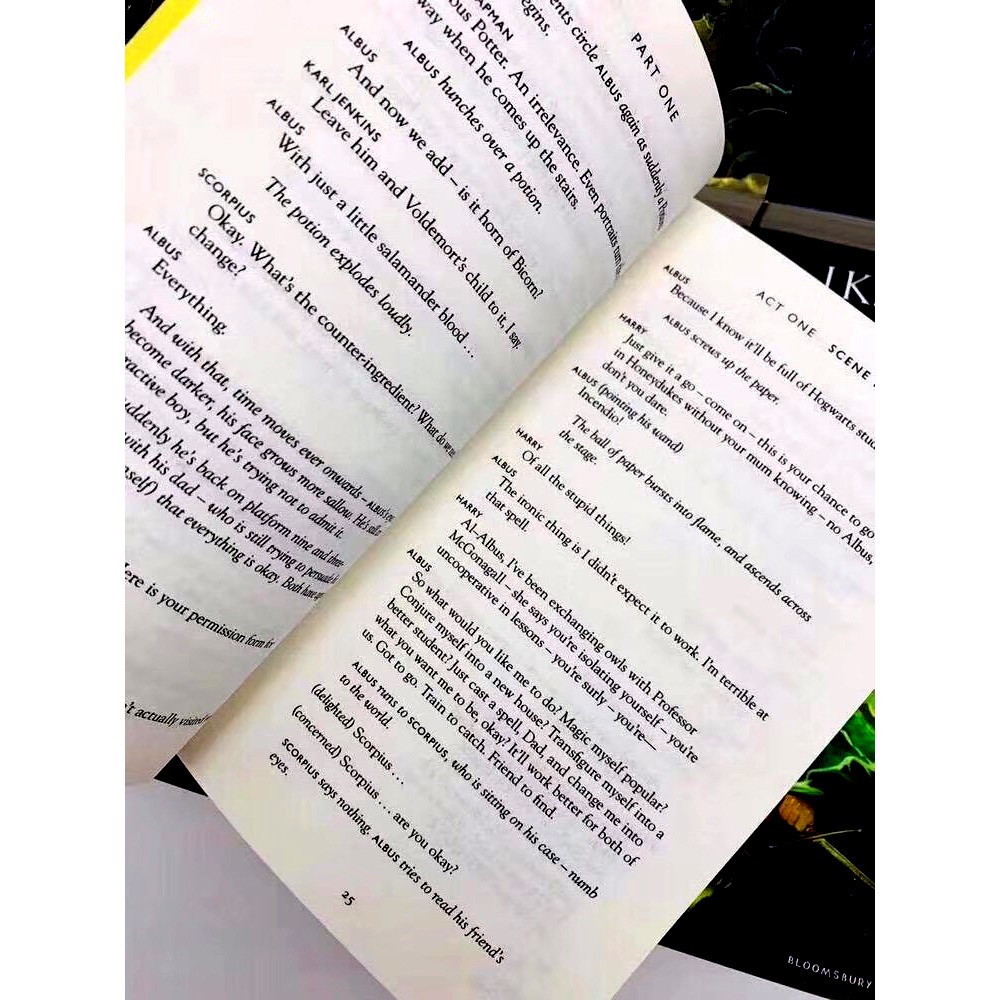 PART ONE
ents circle ALBUS again as suddenly a
begins.
APMAN
bus Potter. An irrelevance. Even portraits turn the
way when he comes up the stairs.
ALBUS hunches over a potion.
ALBUS
And now we add – is it horn of Bicorn?
KARL JENKINS
Leave him and Voldemort's child to it, I say.
ALBUS
With just a little salamander blood . . .
The potion explodes loudly.
SCORPIUS
Okay. What's the counter-ingredient? What do we
change?
ALBUS
Everything.
And with that, time moves ever onwards – ALBUS's
become darker, his face grows more sallow. He's still
ractive boy, but he's trying not to admit it.
uddenly he's back on platform nine and three-
with his dad – who is still trying to persuade
self) that everything is okay. Both have
Here is your permission form
't actually visited
ACT ONE SCENE
ALBUS
Because I know it'll be full of Hogwarts
ALBUS screws up the paper.
HARRY
Just give it a go – come on – this is your chance to go
in Honeydukes without your mum knowing – no Albus,
don't you dare.
ALBUS (pointing his wand)
Incendio!
The ball of paper bursts into flame, and ascends across
the stage.
HARRY
Of all the stupid things!
ALBUS
The ironic thing is I didn't expect it to work. I'm terrible at
that spell.
HARRY
Al–Albus, I've been exchanging owls with Professor
McGonagall – she says you're isolating yourself – you're
uncooperative in lessons – you're surly – you're—
ALBUS
So what would you like me to do? Magic myself popular?
Conjure myself into a new house? Transfigure myself into a
better student? Just cast a spell, Dad, and change me into
what you want me to be, okay? It'll work better for both of
us. Got to go. Train to catch. Friend to find.
ALBUS runs to SCORPIUS, who is sitting on his case – numb
to the world.
(delighted) Scorpius . . .
(concerned) Scorpius . . . are you okay?
SCORPIUS says nothing. ALBUS tries to read his friend's
eyes.
25
JK
BLOOMSBURY